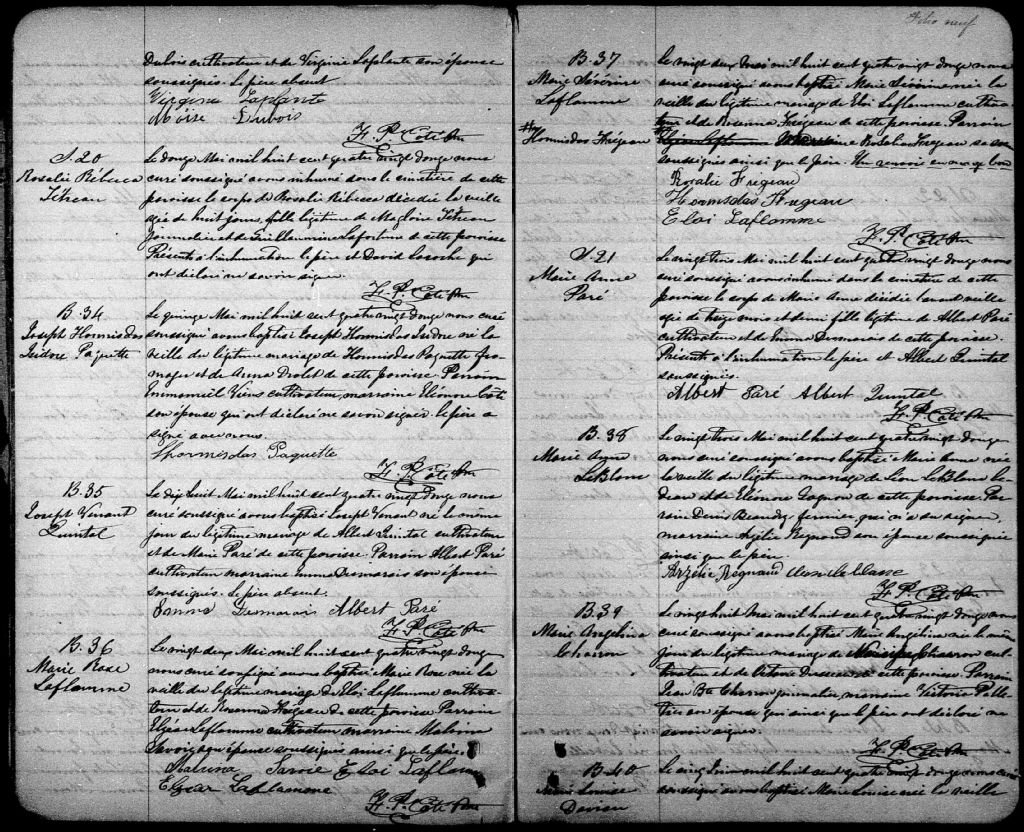 Dubois cultivateur et de Virginie Laplante son épouse
soussignés. le père absent
Virginie Laplante
Moïse Dubois
F. P. Côté Ptre
S. 20
Rosalie Rébecca
Tétreau
Le douze Mai mil huit cent quatre vingt douze nous
curé soussigné avons inhumé dans le cimetière de cette
paroisse le corps de Rosalie Rébecca décédée la veille
agée de huit jours, fille légitime de Magloire Tétreau
journalier et de Guillaumine Lafortune de cette paroisse
Présents à l'inhumation le père et David Laroche qui
ont déclaré ne savoir signer.
F. P. Côté Ptre
B. 34
Joseph Hormisdas
Isidore Paquette
Le quinze Mai mil huit cent quatre vingt douze nous curé
soussigné avons baptisé Joseph Hormisdas Isidore né la
veille du légitime mariage de Hormisdas Paquette fro-
mager et de Anna Drolet de cette paroisse Parrain
Emmanuel Viens cultivateur, marraine Eléonore Côté
son épouse qui ont déclaré ne savoir signer. le père a
signé avec nous.
Hormisdas Paquette
F. P. Côté Ptre
B. 35
Joseph Vinant
Quintal
Le dix huit Mai mil huit cent quatre vingt douze nous
curé soussigné avons baptisé Joseph Vinant né le même
jour du légitime mariage de Albert Quintal cultivateur
et de Marie Paré de cette paroisse. Parrain Albert Paré
cultivateur marraine Emma Desmarais son épouse
soussignés. le père absent.
Emma Desmarais Albert Paré
F. P. Côté Ptre
B. 36
Marie Rose
Laflamme
Le vingt deux Mai mil huit cent quatre vingt douze
nous curé soussigné avons baptisé Marie Rose née la
veille du légitime mariage de Eloi Laflamme cultiva-
teur et de Rosanna Frégeau de cette paroisse Parrain
Elzéar Laflamme cultivateur marraine Malvina
Savoie son épouse soussignés ainsi que le père.
Malvina Savoie Eloi Laflamme
Elzear Laflamme
F. P. Côté Ptre
Folio neuf
B. 37
Marie Séverine
Laflamme
Le vingt deux Mai mil huit cent quatre vingt douze nous
curé soussigné avons baptisé Marie Séverine née la
veille du légitime mariage de Eloi Laflamme cultiva-
teur et de Rosanna Frégeau de cette paroisse. Parrain
# Hormisdas Frégeau
# Elzéar Laflamme marraine Rosalie Frégeau
soussignés ainsi que le père. Un renvoi en marge bon
Rosalie Frégeau
Hormisdas Frégeau
Eloi Laflamme
F. P. Côté Ptre
S. 21
Marie Anna
Paré
Le vingt trois Mai mil huit cent quatre vingt douze nous
curé soussigné avons inhumé dans le cimetière de cette
paroisse le corps de Marie Anna décédée l'avant veille
agée de treize mois et demi fille légitime de Albert Paré
cultivateur et de Emma Desmarais de cette paroisse.
Présents à l'inhumation le père et Albert Quintal
soussignés.
Albert Paré Albert Quintal
F. P. Côté Ptre
B. 38
Marie Anna
LeBlanc
Le vingt trois Mai mil huit cent quatre vingt douze
nous curé soussigné avons baptisé Marie Anna née
la veille du légitime mariage de Léon LeBlanc be-
deau et de Eléonore Gagnon de cette paroisse. Par-
rain Denis Beaudry fermier, qui n'a su signer,
marraine Azélie Regnaud son épouse soussignée
ainsi que le père.
Arzélie Regnaud
F. P. Côté Ptre
B. 39
Marie Angélina
Charron
Le vingt huit Mai mil huit cent quatre vingt douze nous
curé soussigné avons baptisé Marie Angélina née le même
jour du légitime mariage de Charron cul-
tivateur et de de cette paroisse. Parrain
Jean Bte Charron journalier, marraine Victoire Pelle-
tier son épouse qui ainsi que le père ont déclaré ne
savoir signer.
F. P. Côté Ptre
B. 40
Marie Louise
Davian
Le cinq Juin mil huit cent quatre vingt douze nous curé
soussigné avons baptisé Marie Louise née la veille